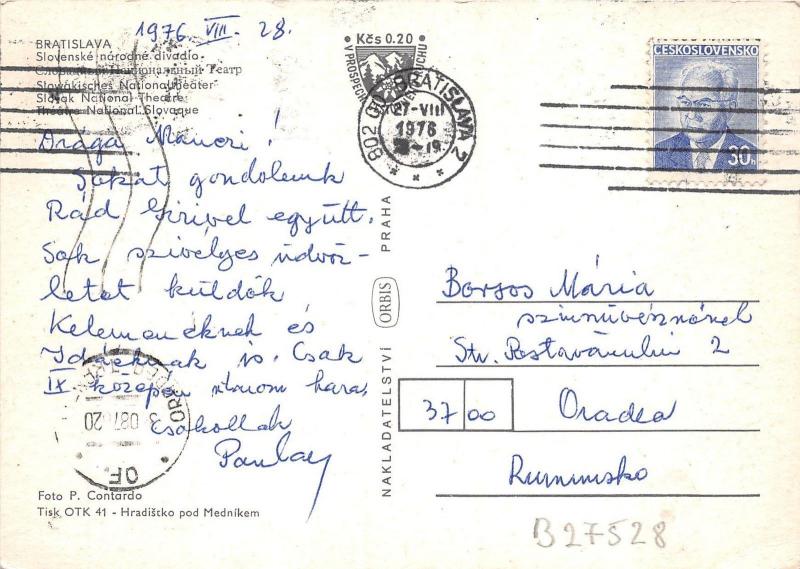 1976. VIII. 28.
BRATISLAVA
Slovenské národné divadlo
Словацкий Национальный Театр
Slowakisches Nationaltheater
Slovak National Theatre
Théatre National Slovaque
Kčs 0.20
V PROSPECH
802 00 BRATISLAVA 2
27-VIII
1976
-19
ČESKOSLOVENSKO
30h
Drága Mancri!
Sokat gondolunk
Rád Girivel együtt.
Sok szivélyes üdvöz-
letet küldök
Kelemenéknek és
is. Csak
IX. közepén haza.
Csókollak
NAKLADATELSTVÍ ORBIS PRAHA
Borsos Mária
szinművésznőnek
Str. Postavarului 2
3700 Oradea
Rumunsko
ORADEA
OF.
Foto P. Contardo
Tisk OTK 41 - Hradištko pod Medníkem
B27528